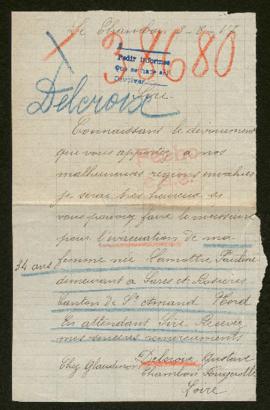 Le Chambon
38680
Pedir informes
Delcroix
Sire
Connaissant le dévouement
que vous apportez à nos
malheureuses régions envahies
je serai très heureux si
vous pouviez faire le nécessaire
pour l'évacuation de ma
34 ans
femme née Lamotte Pauline
demeurant à Sars et Rosières
canton de St Amand Nord
En attendant Sire Recevez
mes sincères remerciements
Delcroix Gustave
Chez
Chambon Feugerolles
Loire